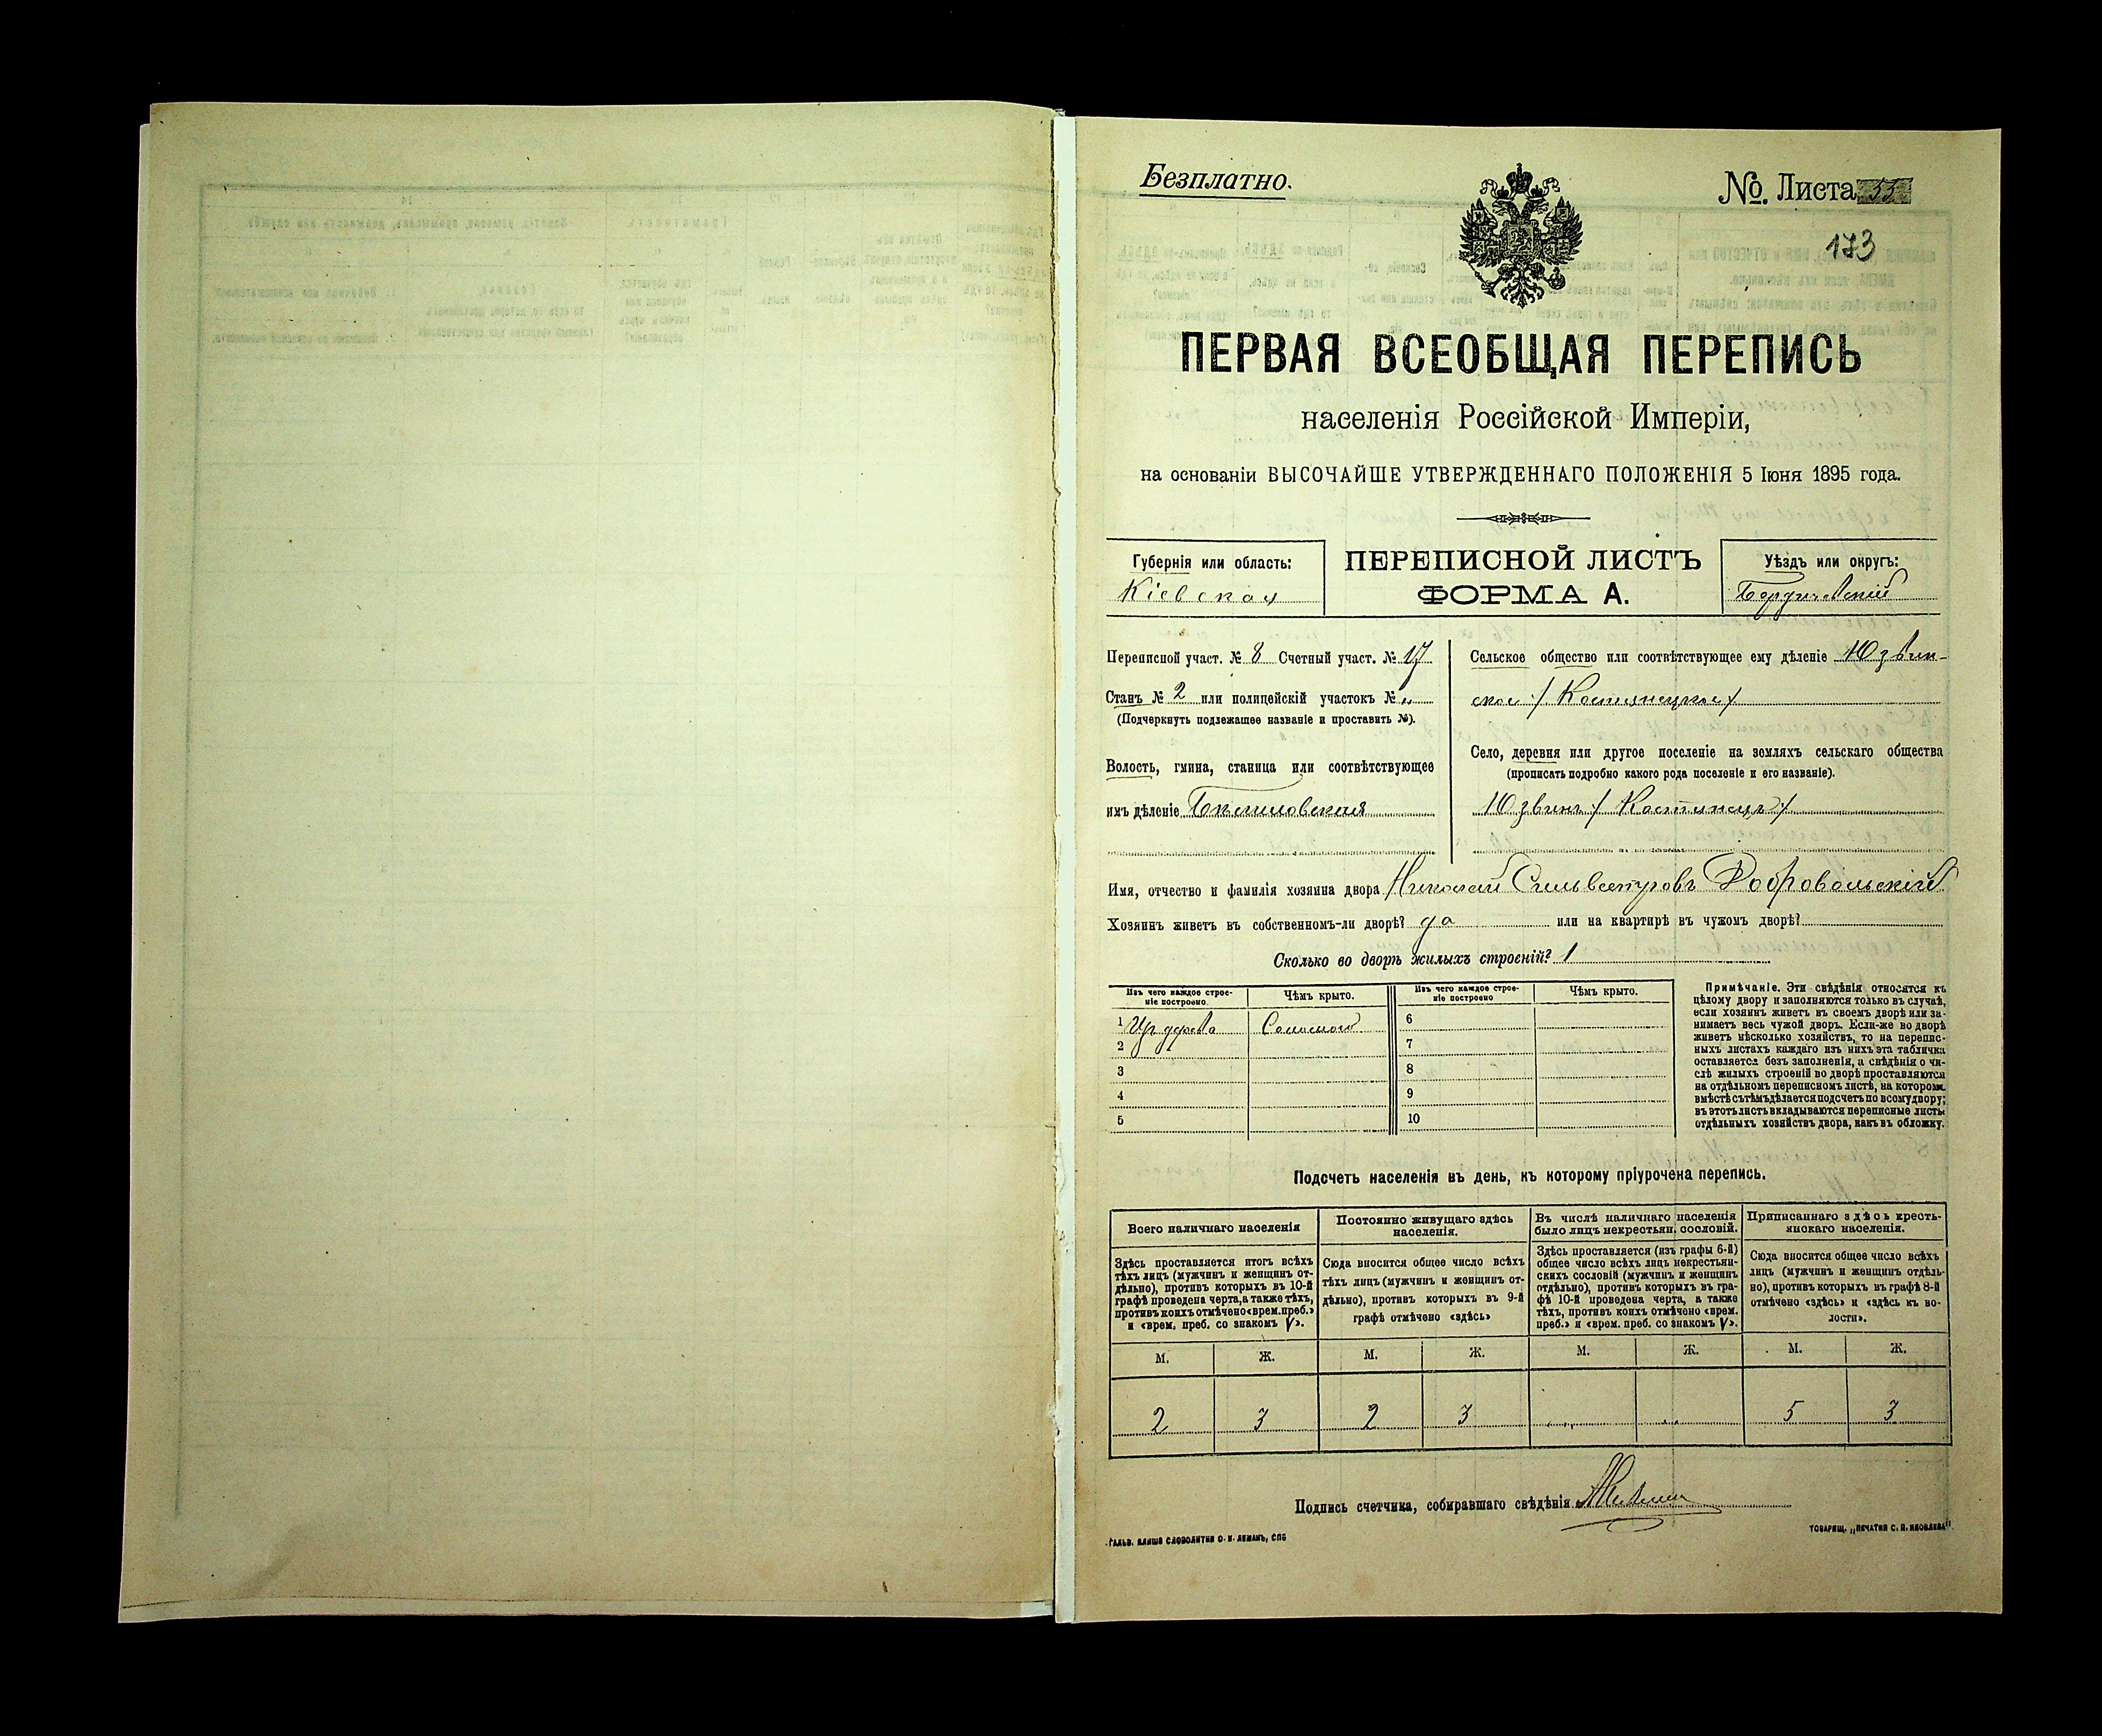 Безплатно.
№. Листа 55
173
ПЕРВАЯ ВСЕОБЩАЯ ПЕРЕПИСЬ
населенія Россійской Имперіи,
на основаніи ВЫСОЧАЙШЕ УТВЕРЖДЕННАГО ПОЛОЖЕНІЯ 5 Іюня 1895 года.
Губернія или область:
Кіевская
ПЕРЕПИСНОЙ ЛИСТЪ
ФОРМА А.
Уѣздъ или округъ:
Бердичевскій
Переписной участ. № 8 Счетный участ. № 17
Станъ № 2 или полицейскій участокъ № „
(Подчеркнуть подлежащее названіе и проставить №).
Волость, гмина, станица или соотвѣтствующее
имъ дѣленіе
Сельское общество или соотвѣтствующее ему дѣленіе Юзвин-
ское /Костинецкое/
Село, деревня или другое поселеніе на земляхъ сельскаго общества
(прописать подробно какого рода поселеніе и его названіе).
Юзвинъ /Костинецъ/
Имя, отчество и фамилія хозяина двора Николай Сильвестровъ Добровольскій
Хозяинъ живетъ въ собственномъ-ли дворѣ? да или на квартирѣ въ чужомъ дворѣ?
Сколько во дворѣ жилыхъ строеній? 1
Изъ чего каждое строе-
ніе построено.
Чѣмъ крыто.
Изъ чего каждое строе-
ніе построено
Чѣмъ крыто.
1 Изъ дерева Соломой 6
2 7
3 8
4 9
5 10
Примѣчаніе. Эти свѣдѣнія относятся къ
цѣлому двору и заполняются только въ случаѣ,
если хозяинъ живетъ въ своемъ дворѣ или за-
нимаетъ весь чужой дворъ. Если-же во дворѣ
живетъ нѣсколько хозяйствъ, то на перепис-
ныхъ листахъ каждаго изъ нихъ эта табличка
оставляется безъ заполненія, а свѣдѣнія о чи-
слѣ жилыхъ строеній во дворѣ проставляются
на отдѣльномъ переписномъ листѣ, на которомъ
вмѣстѣ съ тѣмъ дѣлается подсчетъ по всему двору;
въ этотъ листъ вкладываются переписные листы
отдѣльныхъ хозяйствъ двора, какъ въ обложку.
Подсчетъ населенія въ день, къ которому пріурочена перепись.
Всего наличнаго населенія
Здѣсь проставляется итогъ всѣхъ
тѣхъ лицъ (мужчинъ и женщинъ от-
дѣльно), противъ которыхъ въ 10-й
графѣ проведена черта, а также тѣхъ,
противъ коихъ отмѣчено «врем. преб.»
и «врем. преб. со знакомъ V».
Постоянно живущаго здѣсь
населенія.
Сюда вносится общее число всѣхъ
тѣхъ лицъ (мужчинъ и женщинъ от-
дѣльно), противъ которыхъ въ 9-й
графѣ отмѣчено «здѣсь»
Въ числѣ наличнаго населенія
было лицъ некрестьян. сословій.
Здѣсь проставляется (изъ графы 6-й)
общее число всѣхъ лицъ некрестьян-
скихъ сословій (мужчинъ и женщинъ
отдѣльно), противъ которыхъ въ гра-
фѣ 10-й проведена черта, а также
тѣхъ, противъ коихъ отмѣчено «врем.
преб.» и «врем. преб. со знакомъ V».
Приписаннаго здѣсь кресть-
янскаго населенія.
Сюда вносится общее число всѣхъ
лицъ (мужчинъ и женщинъ отдѣль-
но), противъ которыхъ въ графѣ 8-й
отмѣчено «здѣсь» и «здѣсь къ во-
лости».
М. Ж. М. Ж. М. Ж. М. Ж.
2 3 2 3 „ „ 5 3
Подпись счетчика, собиравшаго свѣдѣнія
ГАЛЬВ. КЛИШЕ СЛОВОЛИТНИ О. И. ЛЕМАНЪ, СПБ
ТОВАРИЩ. „ПЕЧАТНЯ С. П. ЯКОВЛЕВА“.